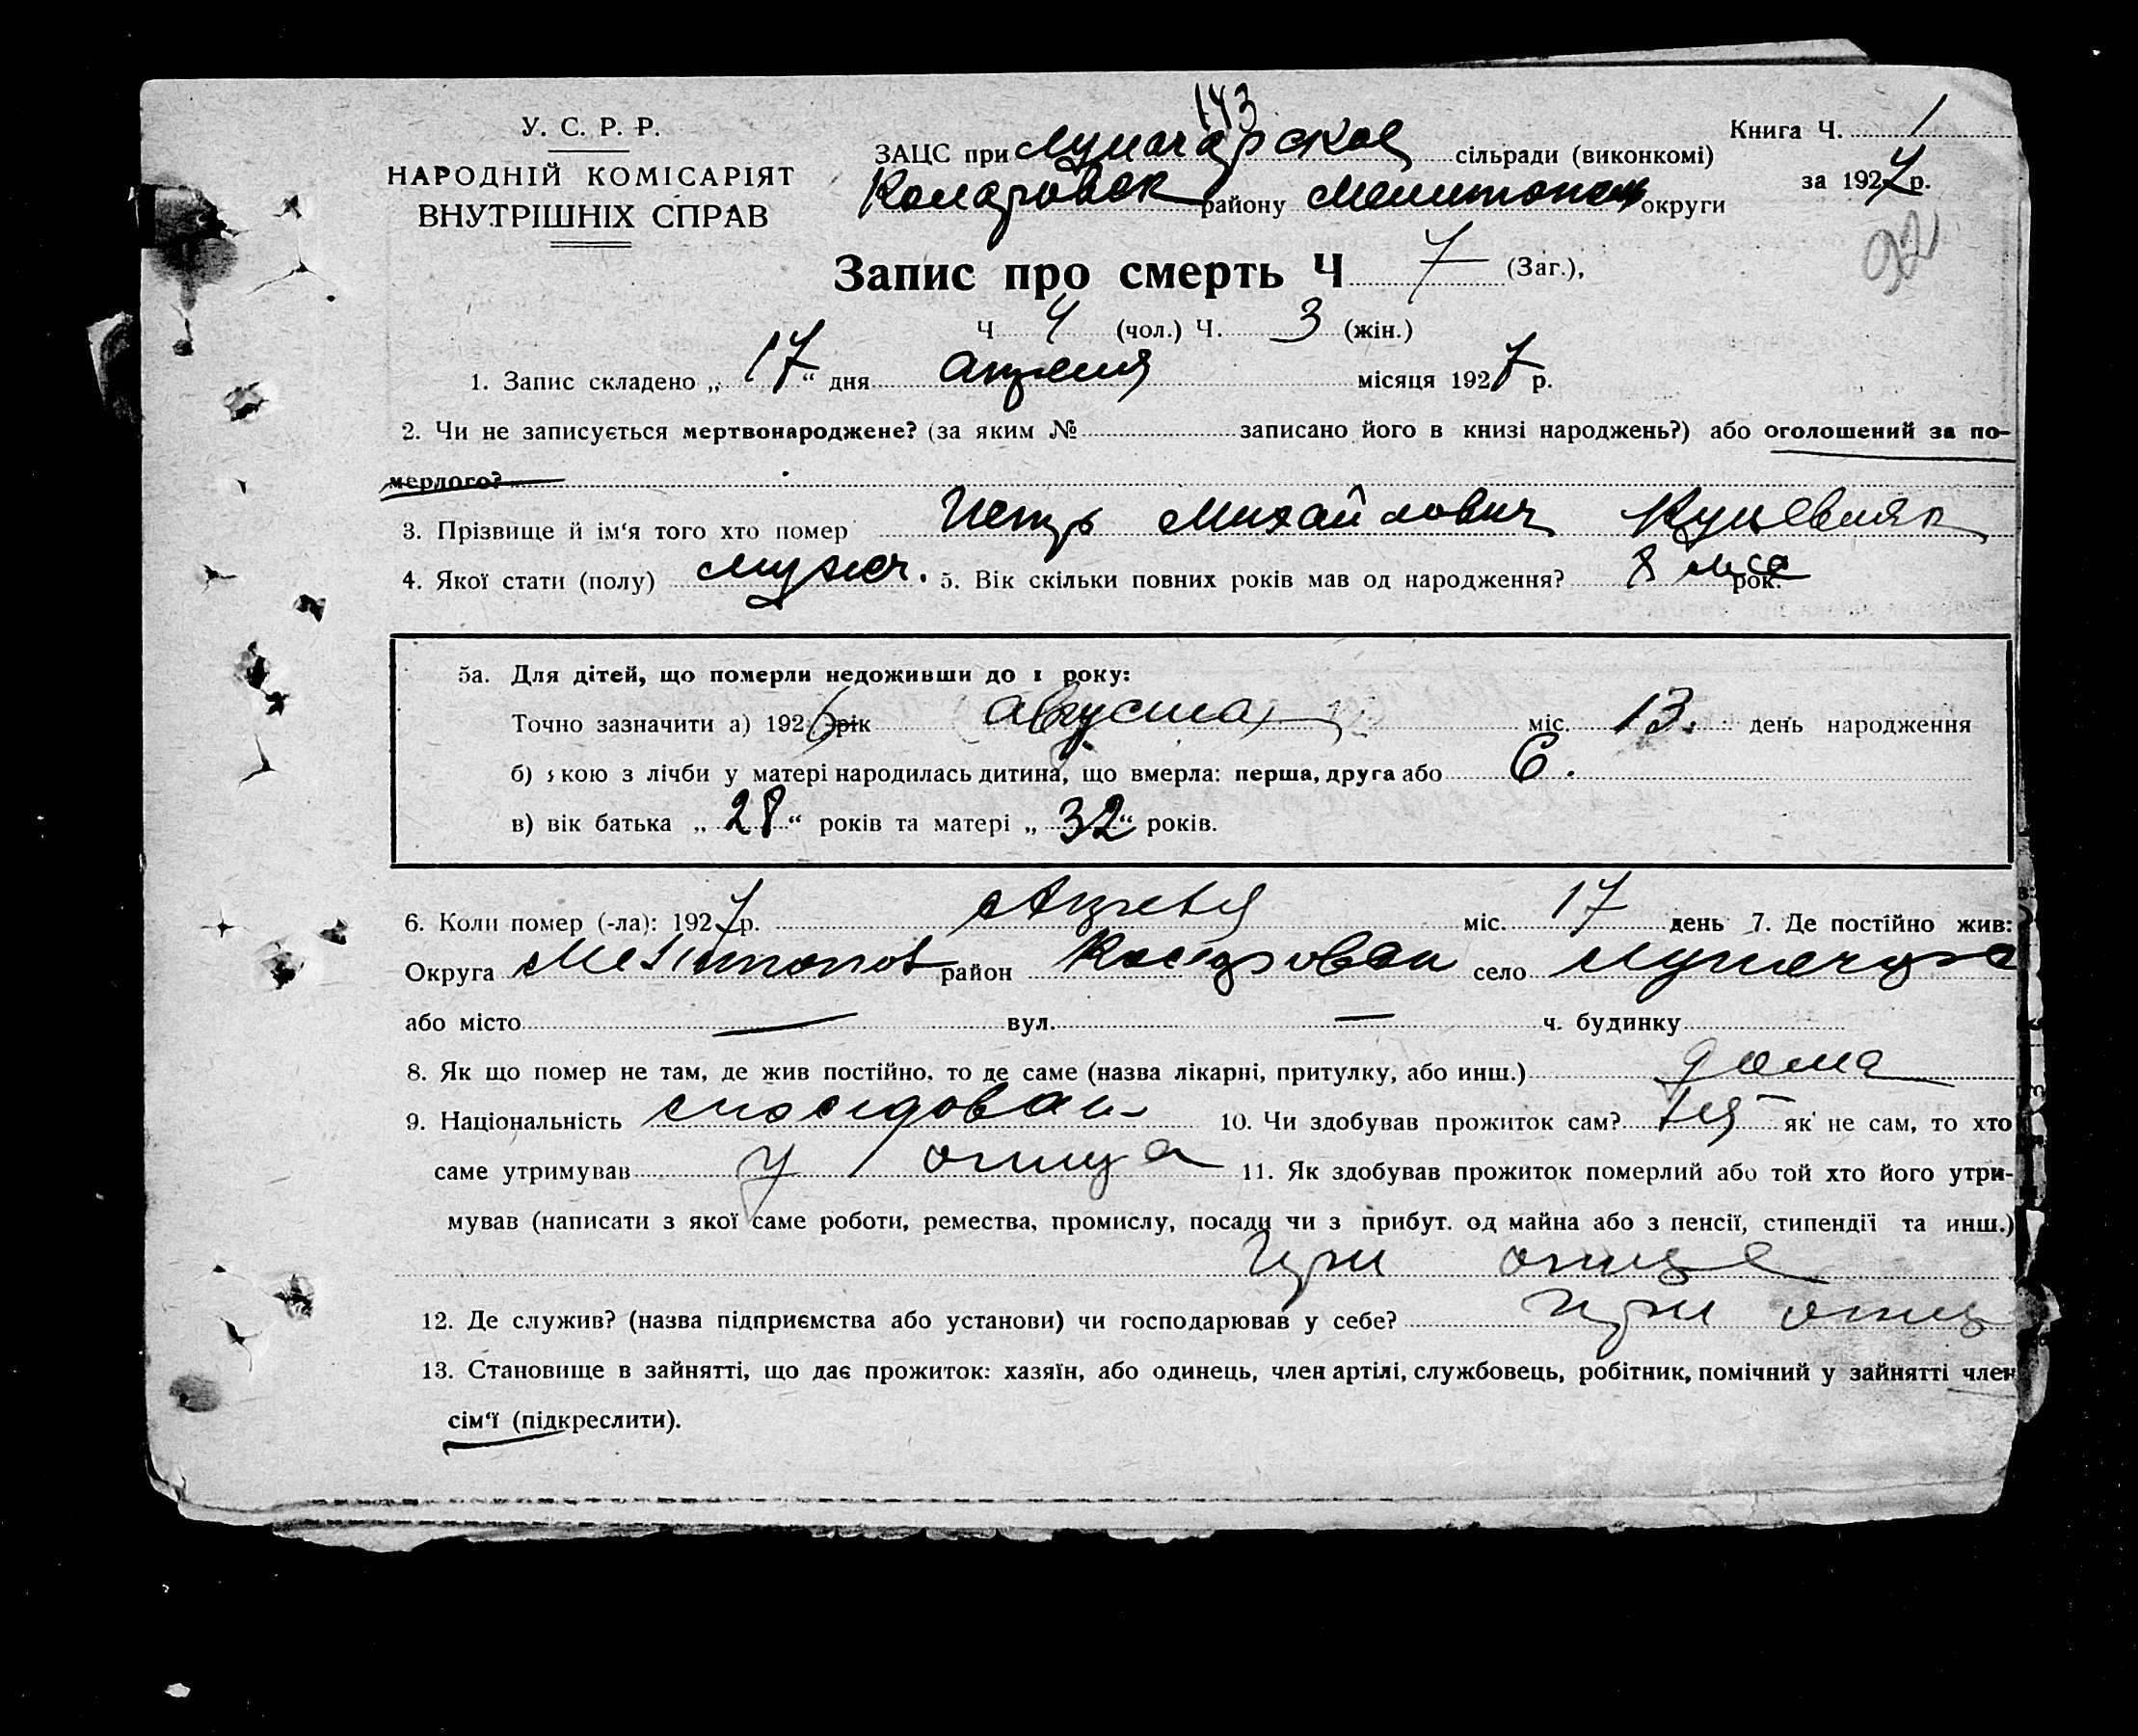 143
У. С. Р. Р.
НАРОДНІЙ КОМІСАРІЯТ
ВНУТРІШНІХ СПРАВ
Книга Ч. 1
за 1927 р.
92
ЗАЦС при Луначарской сільради (виконкомі)
району Мелитопол округи
Запис про смерть Ч 7 (Заг.),
Ч 4 (чол.) Ч. 3 (жін.)
1. Запис складено „ 17 “ дня апреля місяця 1927 р.
2. Чи не записується мертвонароджене? (за яким № записано його в книзі народжень?) або оголошений за по-
мерлого?
3. Прізвище й ім‘я того хто помер Петр Михайлович
4. Якої стати (полу) мужск. 5. Вік скільки повних років мав од народження? 8 мес рок.
5а. Для дітей, що померли недоживши до 1 року:
Точно зазначити а) 1926 рік августа міс. 13. день народження
б) якою з лічби у матері народилась дитина, що вмерла: перша, друга або 6.
в) вік батька „ 28 “ років та матері „ 32 “ років.
6. Коли помер (-ла): 1927 р. Апреля міс. 17 день 7. Де постійно жив:
Округа Мелитопол район село
або місто — вул. — ч. будинку
8. Як що помер не там, де жив постійно, то де саме (назва лікарні, притулку, або инш.) дома
9. Національність 10. Чи здобував прожиток сам? як не сам, то хто
саме утримував у отца 11. Як здобував прожиток померлий або той хто його утри-
мував (написати з якої саме роботи, ремества, промислу, посади чи з прибут. од майна або з пенсії, стипендії та инш.)
при отце
12. Де служив? (назва підприємства або установи) чи господарював у себе? при отце
13. Становище в зайнятті, що дає прожиток: хазяїн, або одинець, член артілі, службовець, робітник, помічний у зайнятті член
сім‘ї (підкреслити).